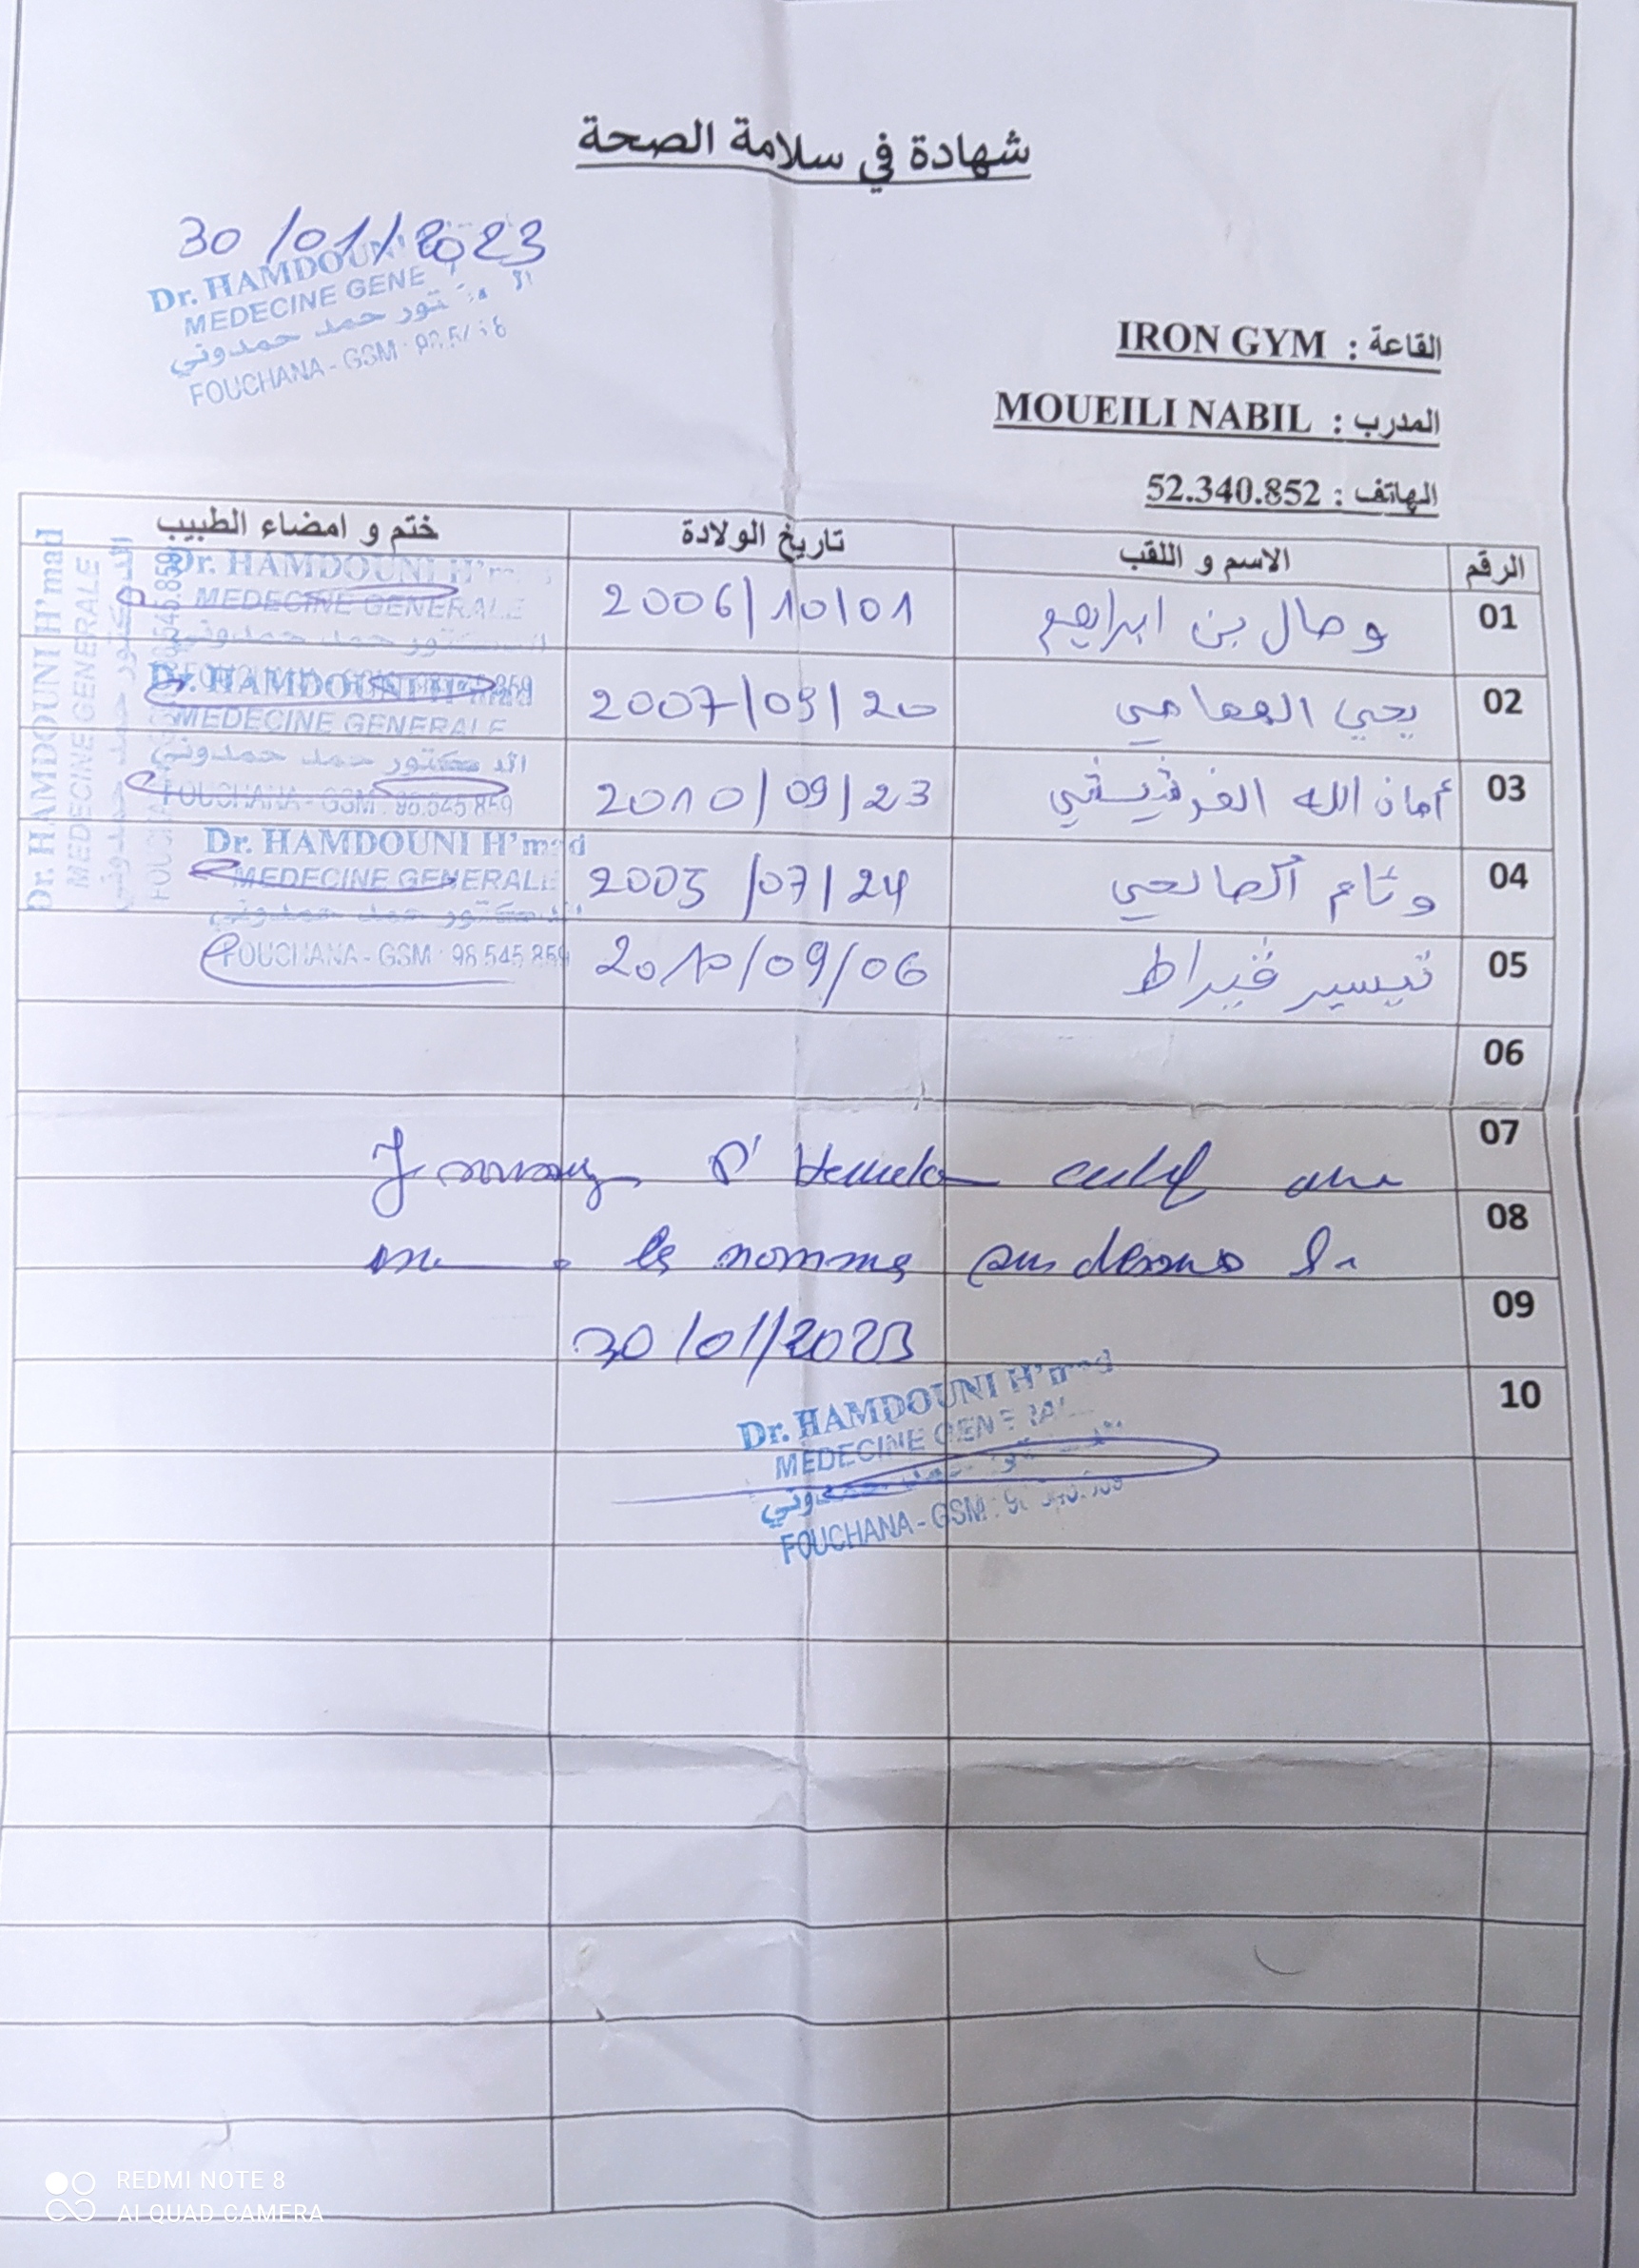 شهادة في سلامة الصحة
30/01/2023
Dr. HAMDOUNI
MEDECINE GENE
حمد حمدوني
FOUCHANA - GSM :
القاعة : IRON GYM
المدرب : MOUEILI NABIL
الهاتف : 52.340.852
الرقم الاسم و اللقب تاريخ الولادة ختم و امضاء الطبيب
01 وصال بن ابراهيم 2006/10/01
02 يحي 2007/09/20
03 أمان الله 2010/09/23
04 وئام الصالحي 2005/07/24
05 تيسير قيراط 2010/09/06
Dr. HAMDOUNI H'mad
MEDECINE GENERALE
الدكتور حمد حمدوني
Dr. HAMDOUNI H'mad
MEDECINE GENERALE
الدكتور حمد حمدوني
FOUCHANA - GSM : 98.545.859
Dr. HAMDOUNI H'mad
MEDECINE GENERALE
الدكتور حمد حمدوني
FOUCHANA - GSM : 98.545.859
Dr. HAMDOUNI H'mad
MEDECINE GENERALE
الدكتور حمد حمدوني
06
07
08
les nommes au dessus
09
30/01/2023
10
Dr. HAMDOUNI H'mad
MEDECINE GENERALE
FOUCHANA - GSM :
REDMI NOTE 8
AI QUAD CAMERA